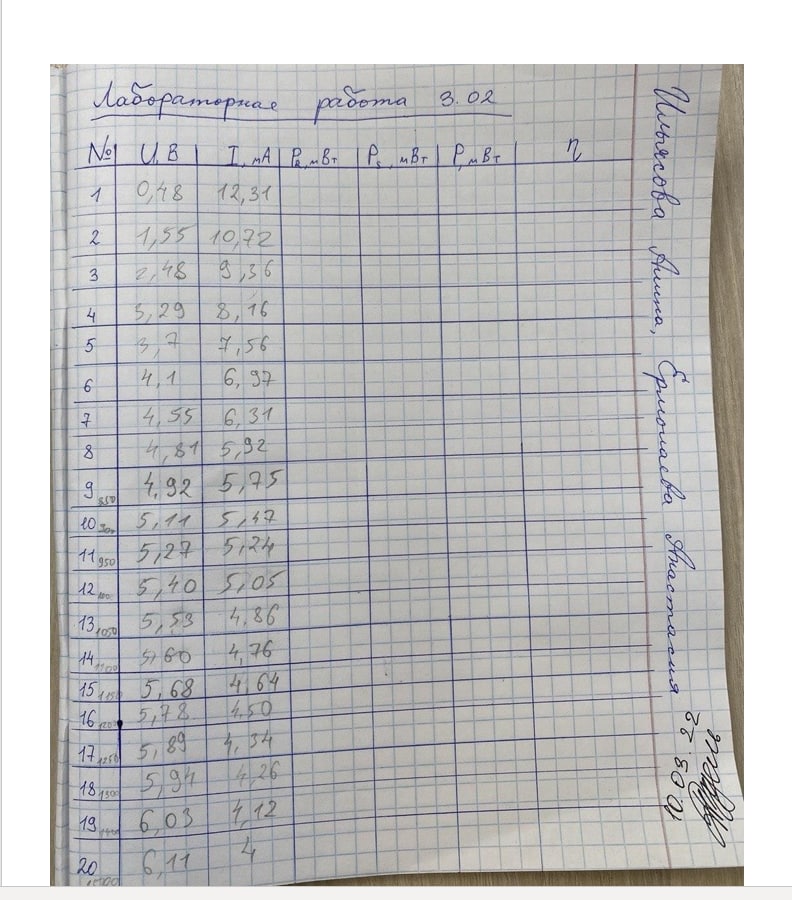 Лабораторная работа 3.02
№ U, В I, мА P_R, мВт P_S, мВт P, мВт η
1 0,48 12,31
2 1,55 10,72
3 2,48 9,36
4 3,29 8,16
5 3,7 7,56
6 4,1 6,97
7 4,55 6,31
8 4,81 5,92
9 850 4,92 5,75
10 900 5,11 5,47
11 950 5,27 5,24
12 5,40 5,05
13 1050 5,53 4,86
14 1100 5,60 4,76
15 1150 5,68 4,64
16 1200 5,78 4,50
17 1250 5,89 4,34
18 1300 5,94 4,26
19 1400 6,03 4,12
20 1500 6,11 4
Ильясова Алина, Ермолаева Анастасия